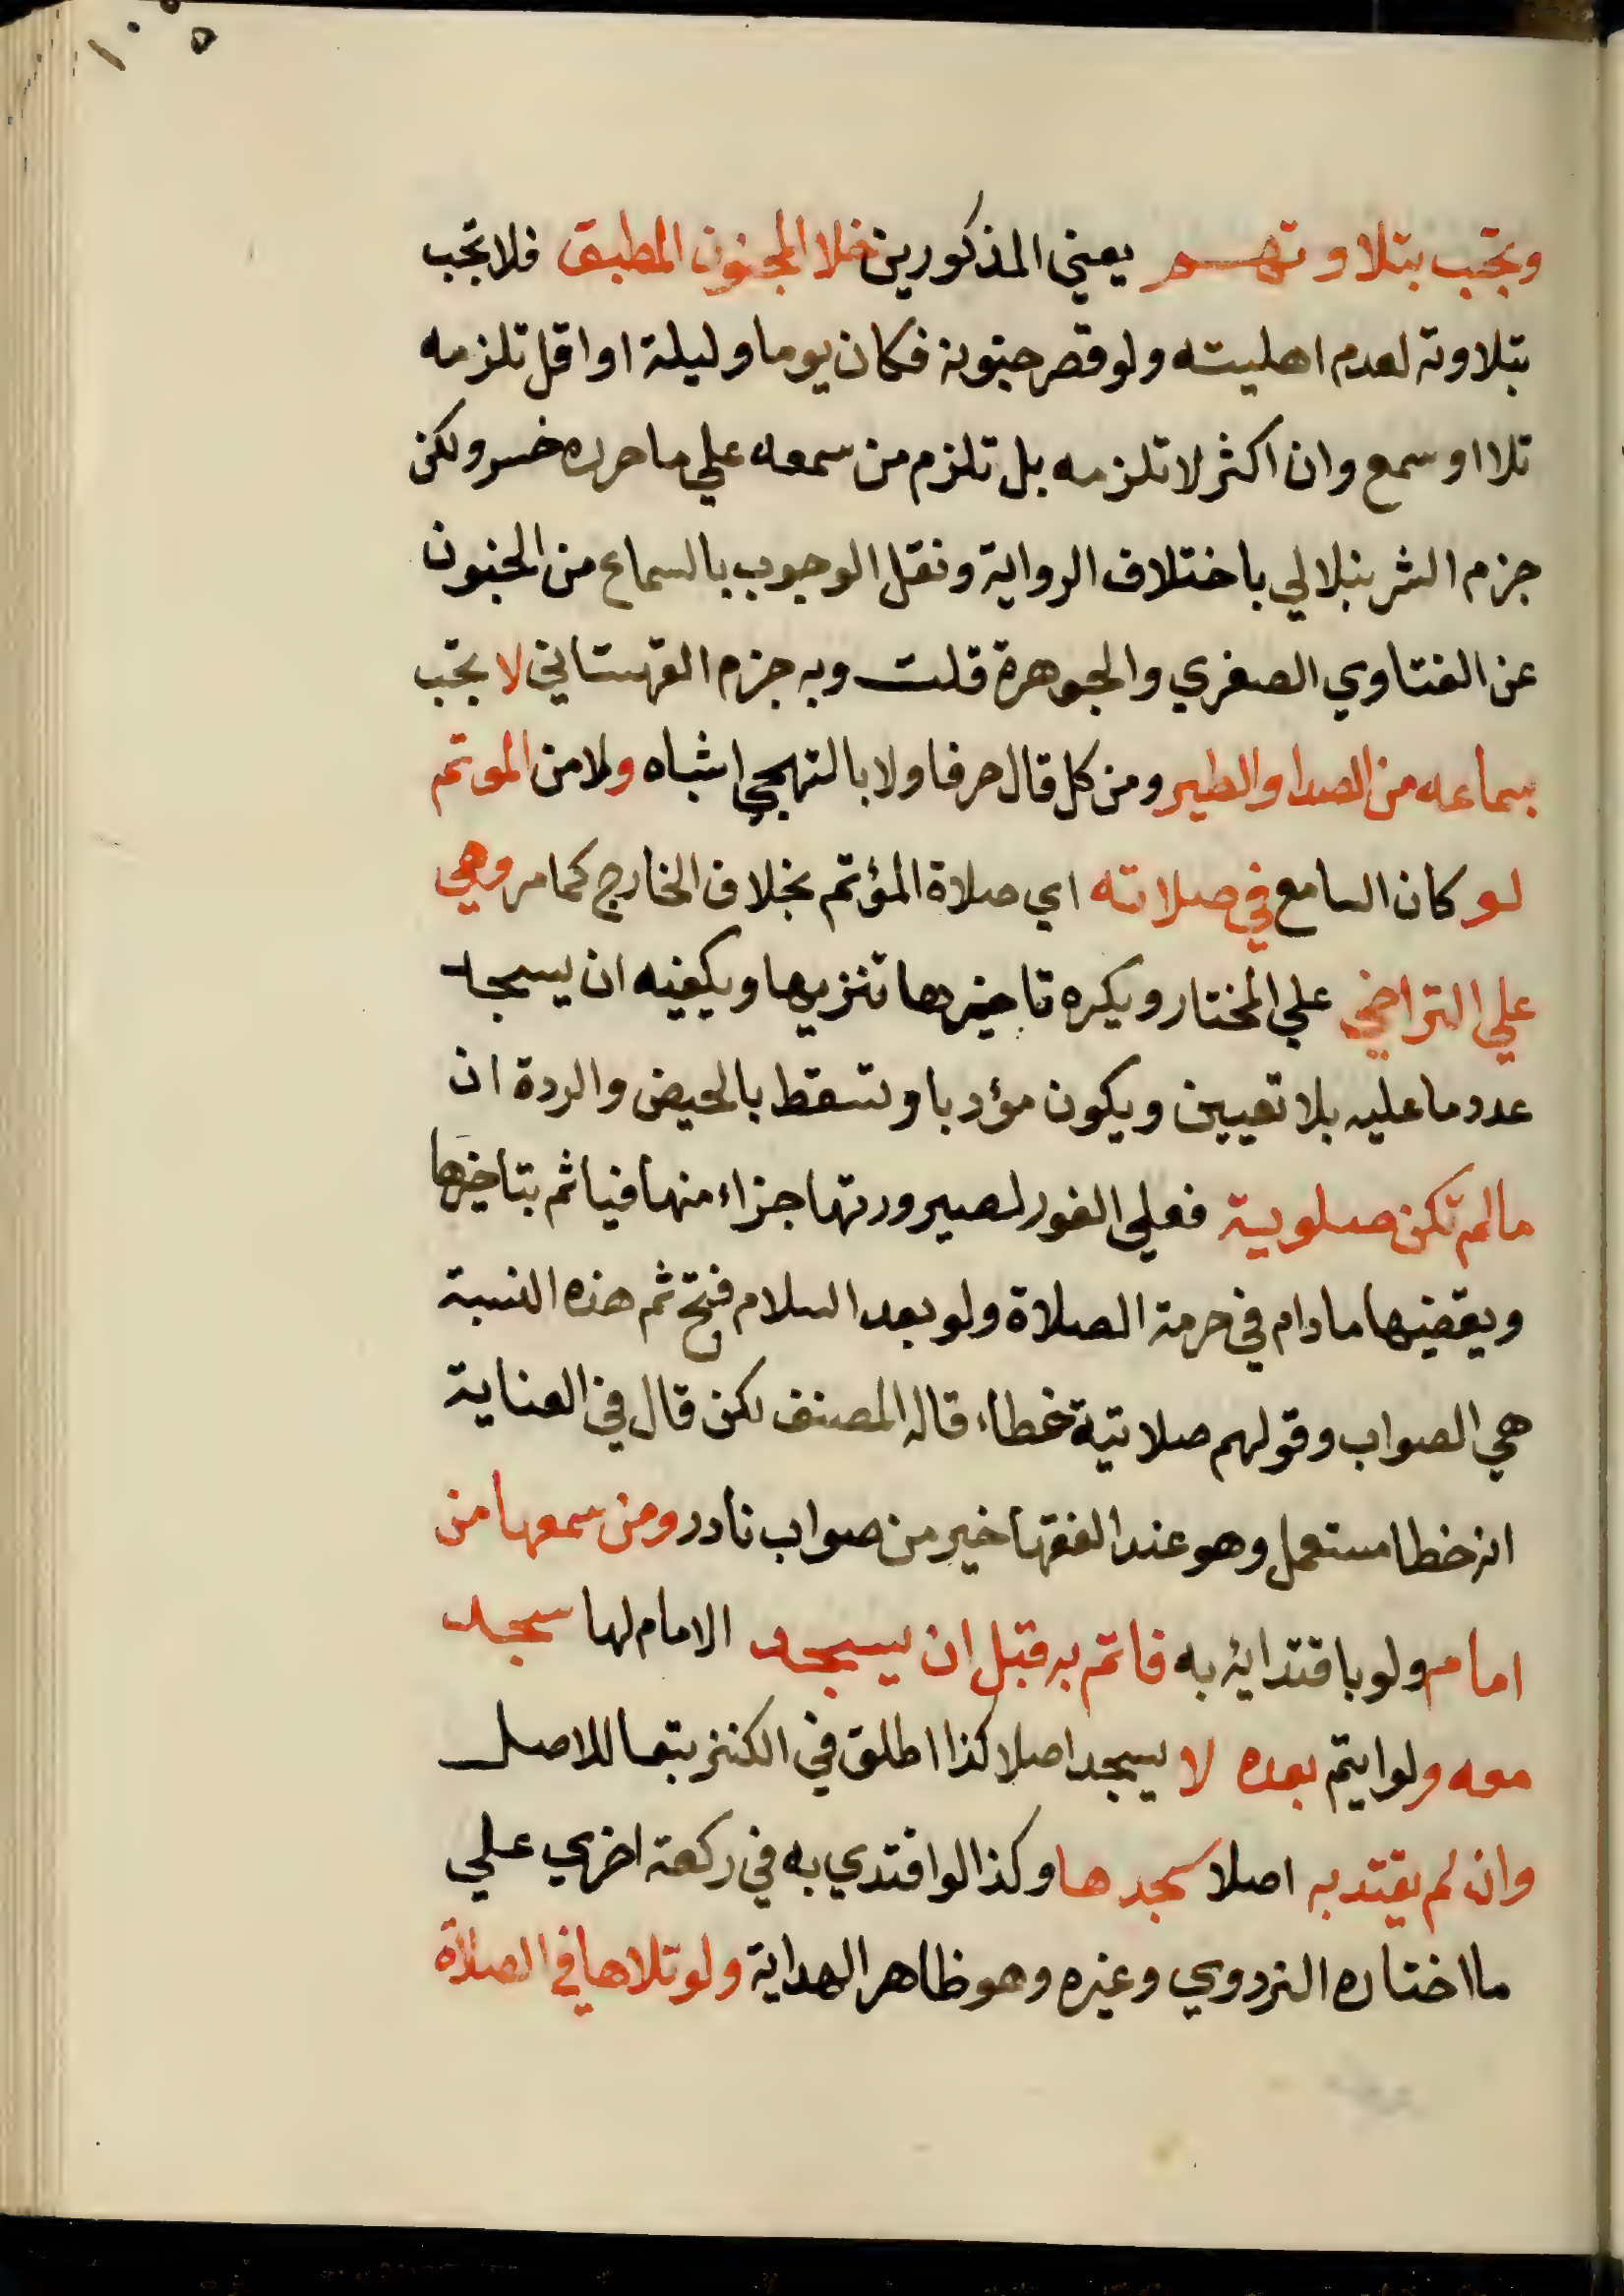 وتجب بتلاوتهم يعني المذكورين خلا المجنون المطبق فلا تجب
بتلاوته لعدم اهليته ولو قصر جنونه فكان يوما وليلة او اقل تلزمه
تلا او سمع وان اكثر لا تلزمه بل تلزم من سمعه علي ما حرره خسرو لكن
جزم الشرنبلالي باختلاف الرواية ونقل الوجوب بالسماع من المجنون
عن الفتاوي الصغري والجوهرة قلت وبه جزم القهستاني لا تجب
بسماعه من الصدا والطير ومن كل قال حرفا ولا بالتهجي اشباه ولا من الموتم
لو كان السامع في صلاته اي صلاة المؤتم بخلاف الخارج كما مر وهي
علي التراخي علي المختار ويكره تاخيرها تنزيها ويكفيه ان يسجد
عدد ما عليه بلا تعيين ويكون مؤديا وتسقط بالحيض والردة ان
ما لم تكن صلوية فعلي الفور لصيرورتها جزاء منها فياثم بتاخيرها
ويقضيها ما دام في حرمة الصلاة ولو بعد السلام فتح ثم هذه النسبة
هي الصواب وقولهم صلاتية خطاء قاله المصنف لكن قال في العناية
انه خطا مستعمل وهو عند الفقها خير من صواب نادر ومن سمعها من
امام ولو باقتدايه به فاتم به قبل ان يسجد الامام لها سجد
معه ولو ايتم بعده لا يسجد اصلا كذا اطلق في الكنز بتعا للاصل
وان لم يقتد به اصلا سجدها وكذا لو اقتدي به في ركعة اخري علي
ما اختاره البزدوي وغيره وهو ظاهر الهداية ولو تلاها في الصلاة